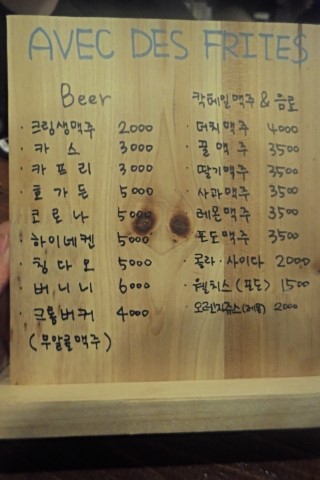 AVEC DES FRITES
Beer
· 크림생맥주 2000
· 카스 3000
· 카프리 3000
· 호가든 5000
· 코로나 5000
· 하이네켄 5000
· 칭다오 5000
· 버니니 6000
· 크롬버커 4000
(무알콜맥주)
칵테일맥주 & 음료
· 더치맥주 4000
· 꿀맥주 3500
· 딸기맥주 3500
· 사과맥주 3500
· 레몬맥주 3500
· 포도맥주 3500
· 콜라·사이다 2000
· 웰치스(포도) 1500
· 오렌지쥬스(제주) 2000